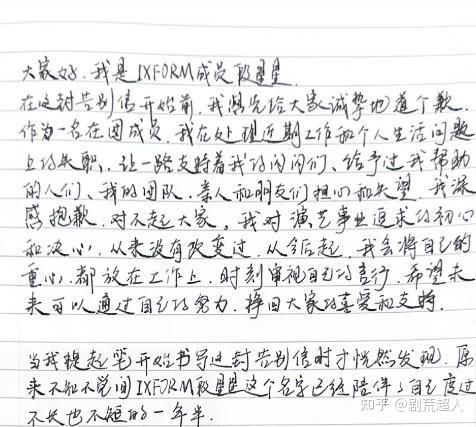 大家好，我是IXFORM成员段星星.
在这封告别信开始前，我想先给大家诚挚地道个歉，
作为一名在团成员，我在处理近期工作和个人生活问题
上的失职，让一路支持着我的闪闪们、给予过我帮助
的人们、我的团队、亲人和朋友们担心和失望，我深
感抱歉，对不起大家。我对演艺事业追求的初心
和决心，从来没有改变过，从今后起，我会将自己的
重心，都放在工作上，时刻审视自己的言行，希望未
来可以通过自己的努力，挣回大家的喜爱和支持.
当我提起笔开始书写这封告别信时才恍然发现，原
来不知不觉间IXFORM段星星这个名字已经陪伴了自己度过
不长也不短的一年半.
知乎 @剧荒超人